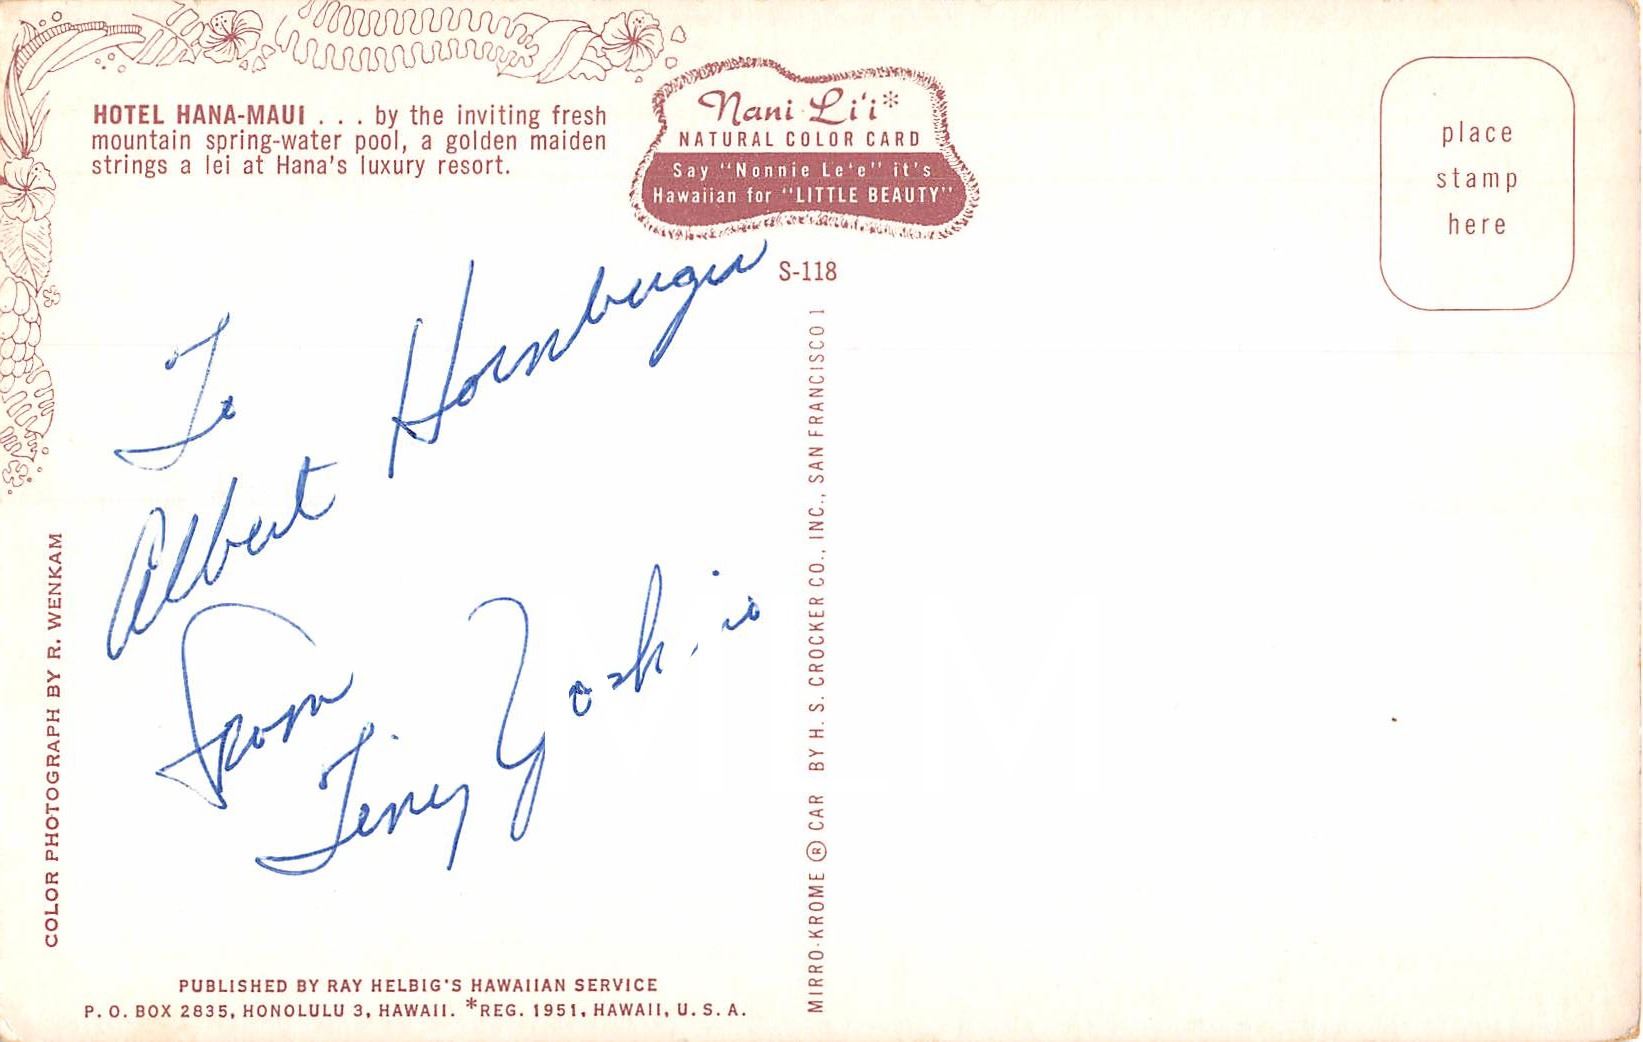 HOTEL HANA-MAUI . . . by the inviting fresh
mountain spring-water pool, a golden maiden
strings a lei at Hana's luxury resort.
Nani Li'i*
NATURAL COLOR CARD
Say "Nonnie Le'e" it's
Hawaiian for "LITTLE BEAUTY"
place
stamp
here
S-118
To
Albert Hornberger
From
Yoshio
COLOR PHOTOGRAPH BY R. WENKAM
MIRRO-KROME ® CAR BY H. S. CROCKER CO., INC., SAN FRANCISCO 1
PUBLISHED BY RAY HELBIG'S HAWAIIAN SERVICE
P. O. BOX 2835, HONOLULU 3, HAWAII. *REG. 1951, HAWAII, U. S. A.
MLM